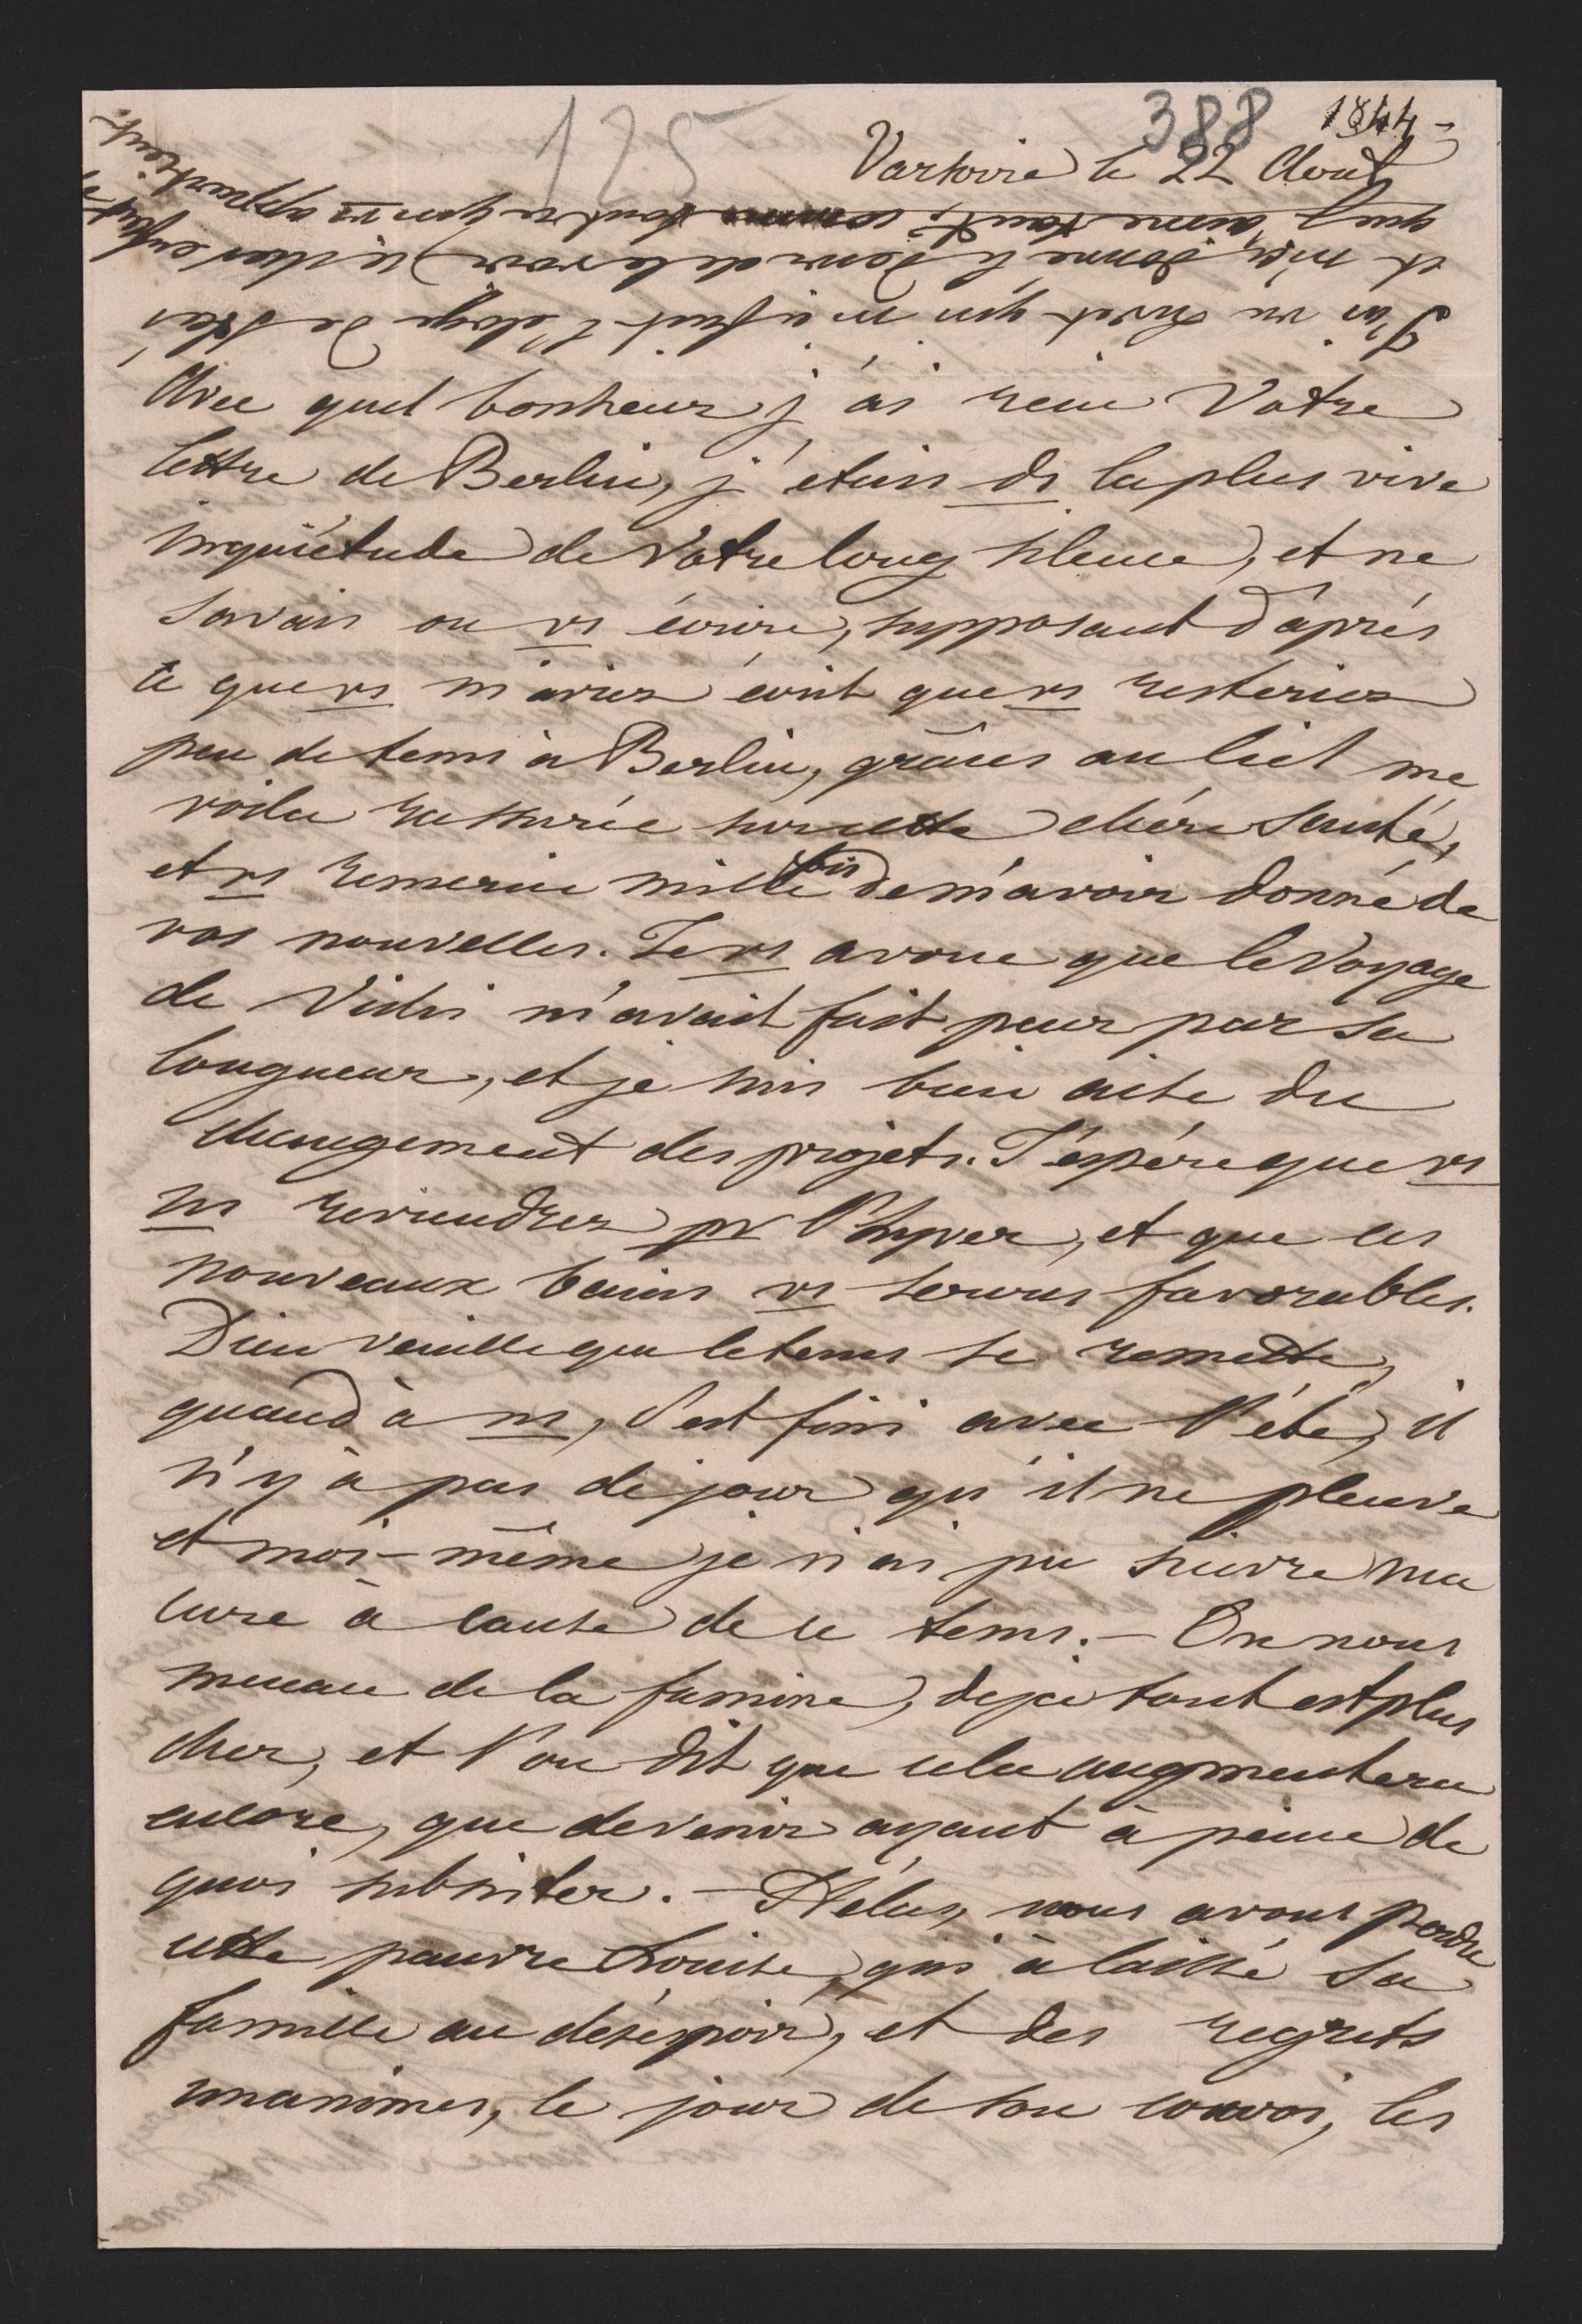 125
388
1844 -
Varsovie le 22 Aout
J'ai vu Huret qui m'a fait l'éloge de Stas
et m'a donné le desir de le voir ce cher enfant
que j'aime tant, comme tout ce qui vs appartient.
Avec quel bonheur j'ai reçu Votre
lettre de Berlin, j'étais ds la plus vive
inquiétude de Votre long silence, et ne
savais ou vs écrire, supposant d'aprés
ce que vs m'aviez écrit que vs resteriez
peu de tems à Berlin, grâces au ciel me
voila rassurée sur cette chére Santé,
et vs remercie mille fois de m'avoir donné de
vos nouvelles. Je vs avoue que le Voyage
de Vichi m'avait fait peur par sa
longueur, et je suis bien aise du
changement des projets. J'éspére que vs
ns reviendrez pr l'hyver, et que ces
nouveaux bains vs serons favorables.
Dieu veuille que le tems se remette,
quand à ns, c'est fini avec l'été, il
n'y à pas de jour qu'il ne pleuve
et moi-même je n'ai pu suivre ma
cure à cause de ce tems. — On nous
menace de la famine, deja tout est plus
cher, et l'on dit que cela augmentera
encore, que devenir ayant à peine de
quoi subsister. — Hélas, nous avons perdu
cette pauvre Louise, qui à laissé sa
famille au désespoir, et des regrets
unanimes, le jour de son convoi, les